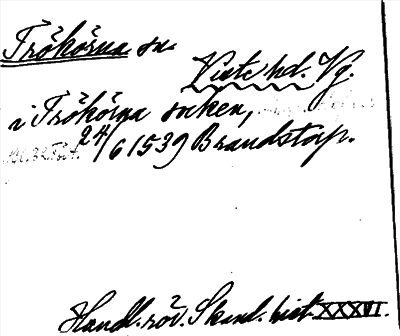 Trökörna sn.
Viste hd. Vg.
i Trökörna sucken,
24/6 1539 Brandstorp.
Handl. rör. Skand. hist. XXXVI.